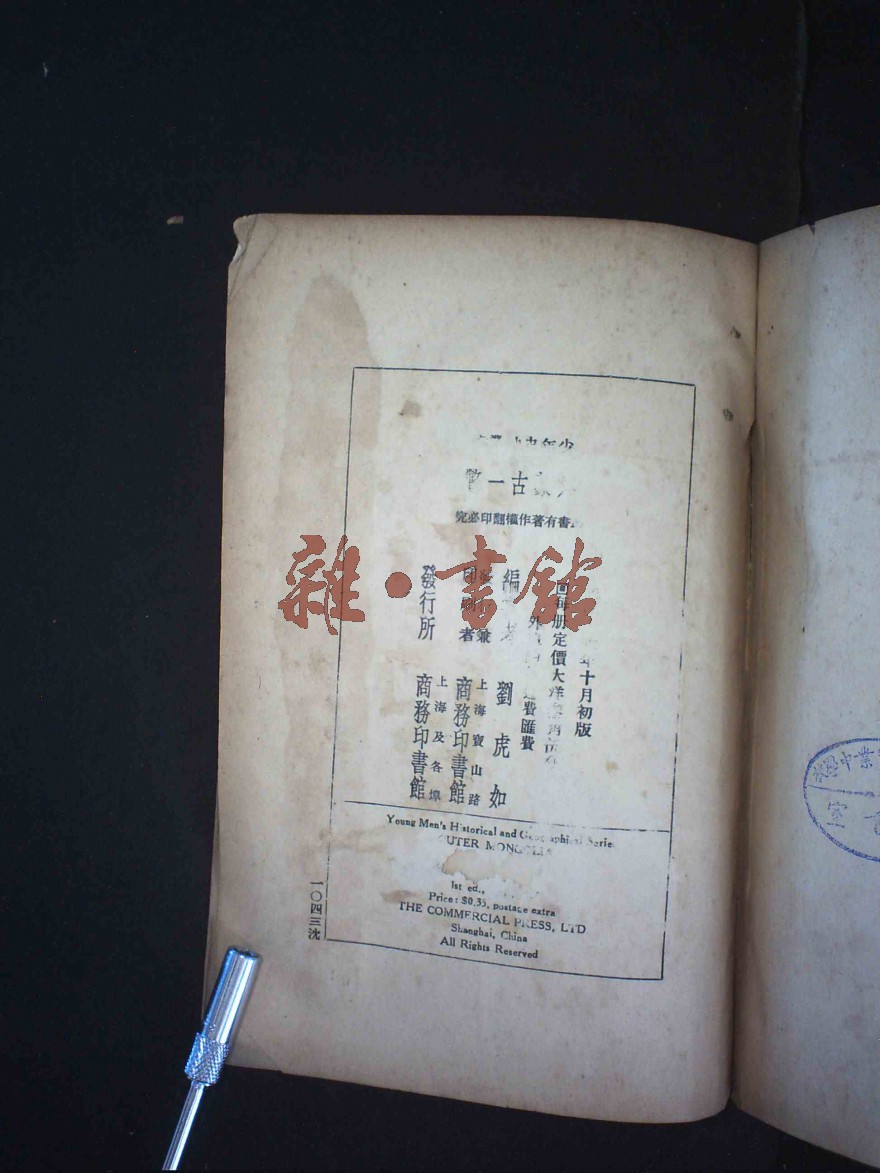 少年史地叢
古一瞥
書有著作權翻印必究
年十月初版
回每册定價大洋
外
運費匯費
編
劉虎如
兼
印刷者
上海寶山路
商務印書館
發行所
上海及各埠
商務印書館
Young Men's Historical and Geographical Series
OUTER MONGOLIA
1st ed.,
Price: $0.35, postage extra
THE COMMERCIAL PRESS, LTD.
Shanghai, China
All Rights Reserved
一〇四三沈
雜·書館